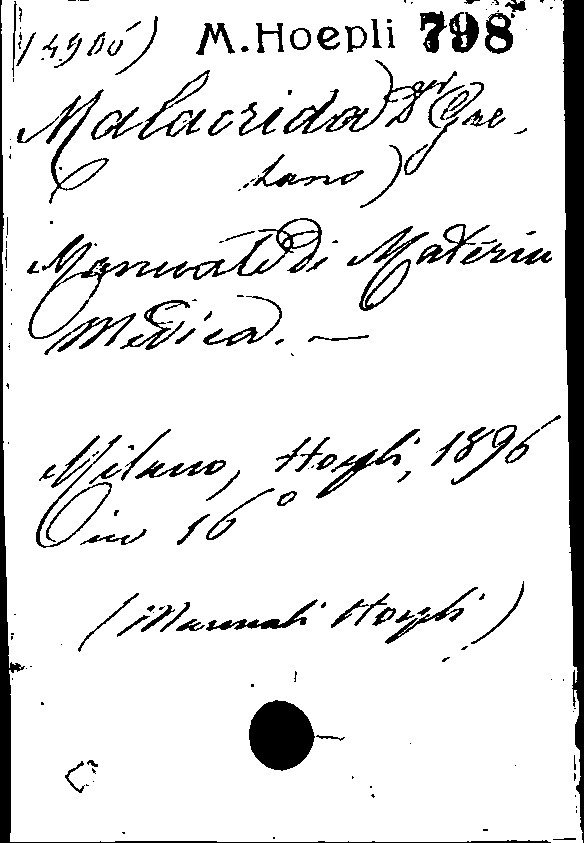 (4900) M. Hoepli 798
Malacrida) Dr Gae-
tano)
Manuale di Materia
Medica. —
Milano, Hoepli, 1896
in 16°
(Manuali Hoepli)